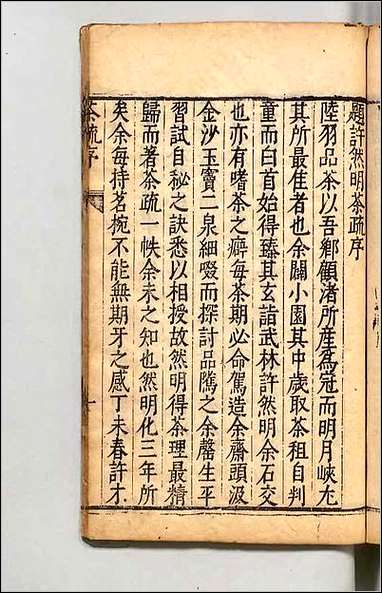 題許然明茶疏序
陸羽品茶以吾鄉顧渚所產爲冠而明月峽尤
其所最佳者也余闢小園其中歲取茶租自判
童而白首始得臻其玄詣武林許然明余石交
也亦有嗜茶之癖每茶期必命駕造余齋頭汲
金沙玉竇二泉細啜而探討品隲之余罄生平
習試自秘之訣悉以相授故然明得茶理最精
歸而著茶疏一帙余未之知也然明化三年所
矣余每持茗椀不能無期牙之感丁未春許才
茶疏序
一